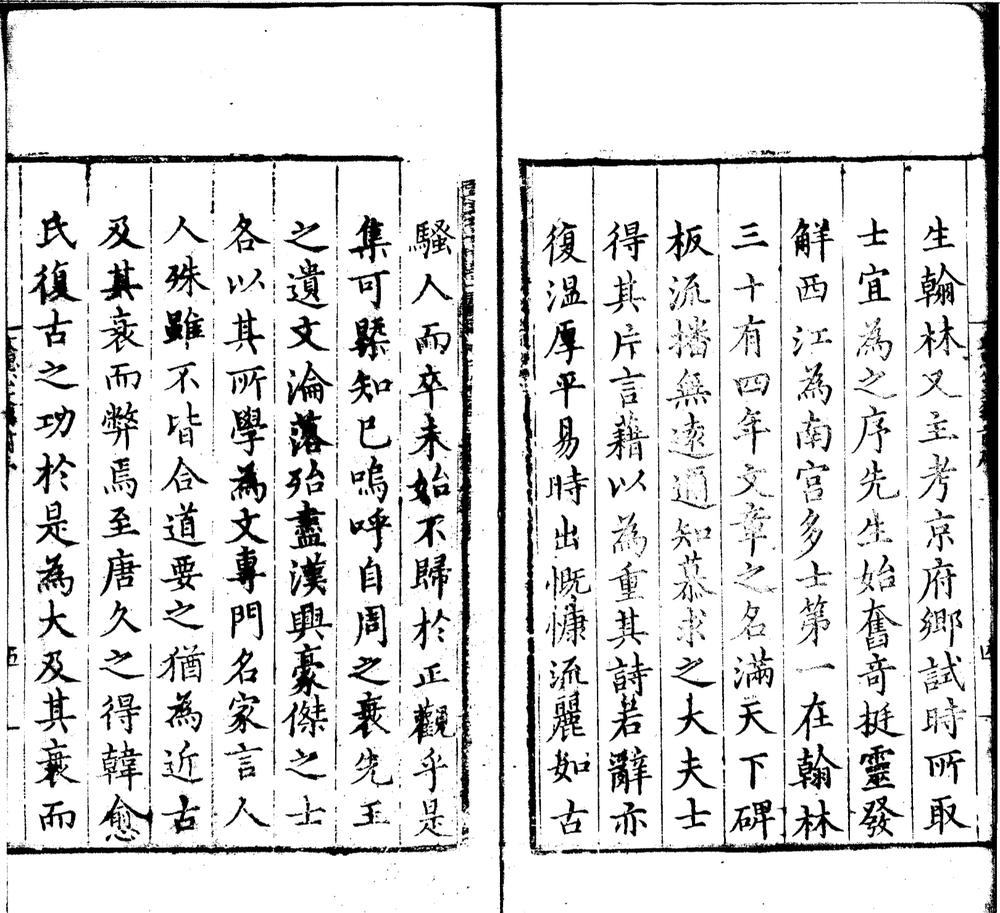 生翰林又主考京府鄉試時所取
士宜為之序先生始奮奇挺靈發
解西江為南宮多士第一在翰林
三十有四年文章之名滿天下碑
板流播無遠邇知慕求之大夫士
得其片言藉以為重其詩若辭亦
復溫厚平易時出慨慷流麗如古
騷人而卒未始不歸於正觀乎是
集可槩知已嗚呼自周之衰先王
之遺文淪落殆盡漢興豪傑之士
各以其所學為文專門名家言人
人殊雖不皆合道要之猶為近古
及其衰而弊焉至唐久之得韓愈
氏復古之功於是為大及其衰而
五